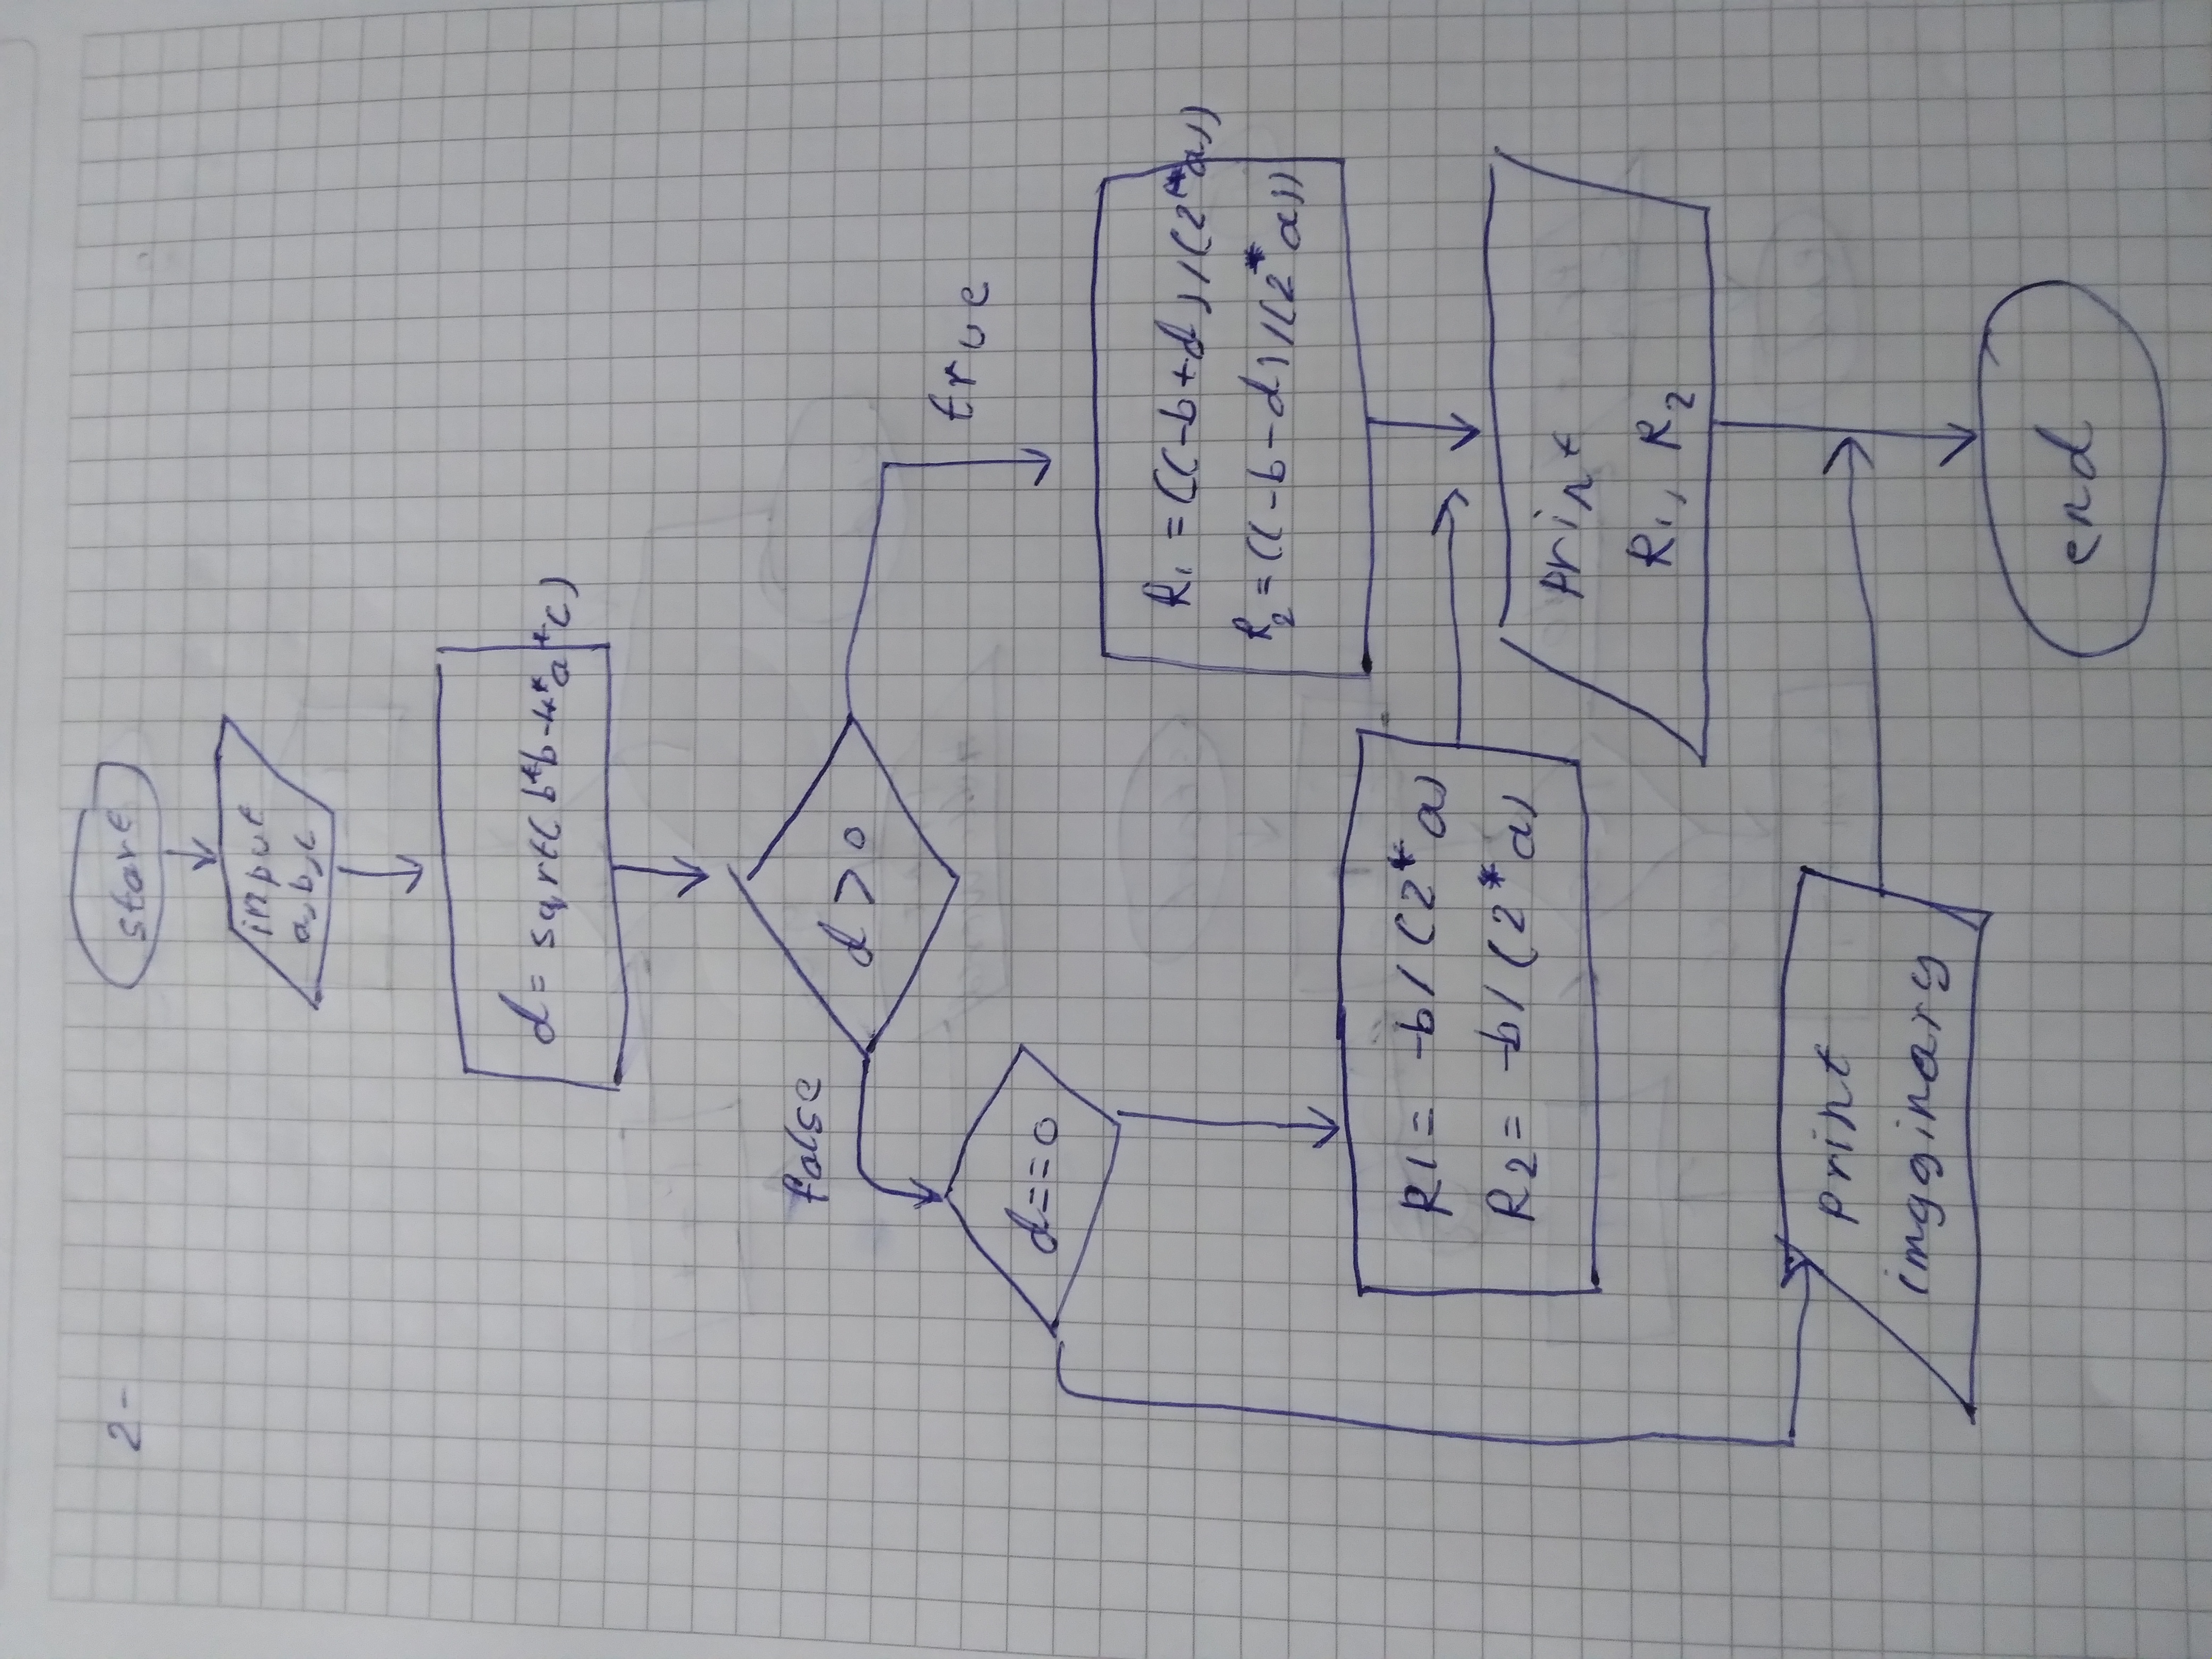 2-
start
input
a,b,c
d= sqrt(b*b-4*a*c)
d>0
false
true
d==0
R1 =((-b+d)/(2*a))
R2=((-b-d)/(2*a))
R1= -b/(2*a)
R2= -b/(2*a)
print
R1, R2
print
imgginary
end